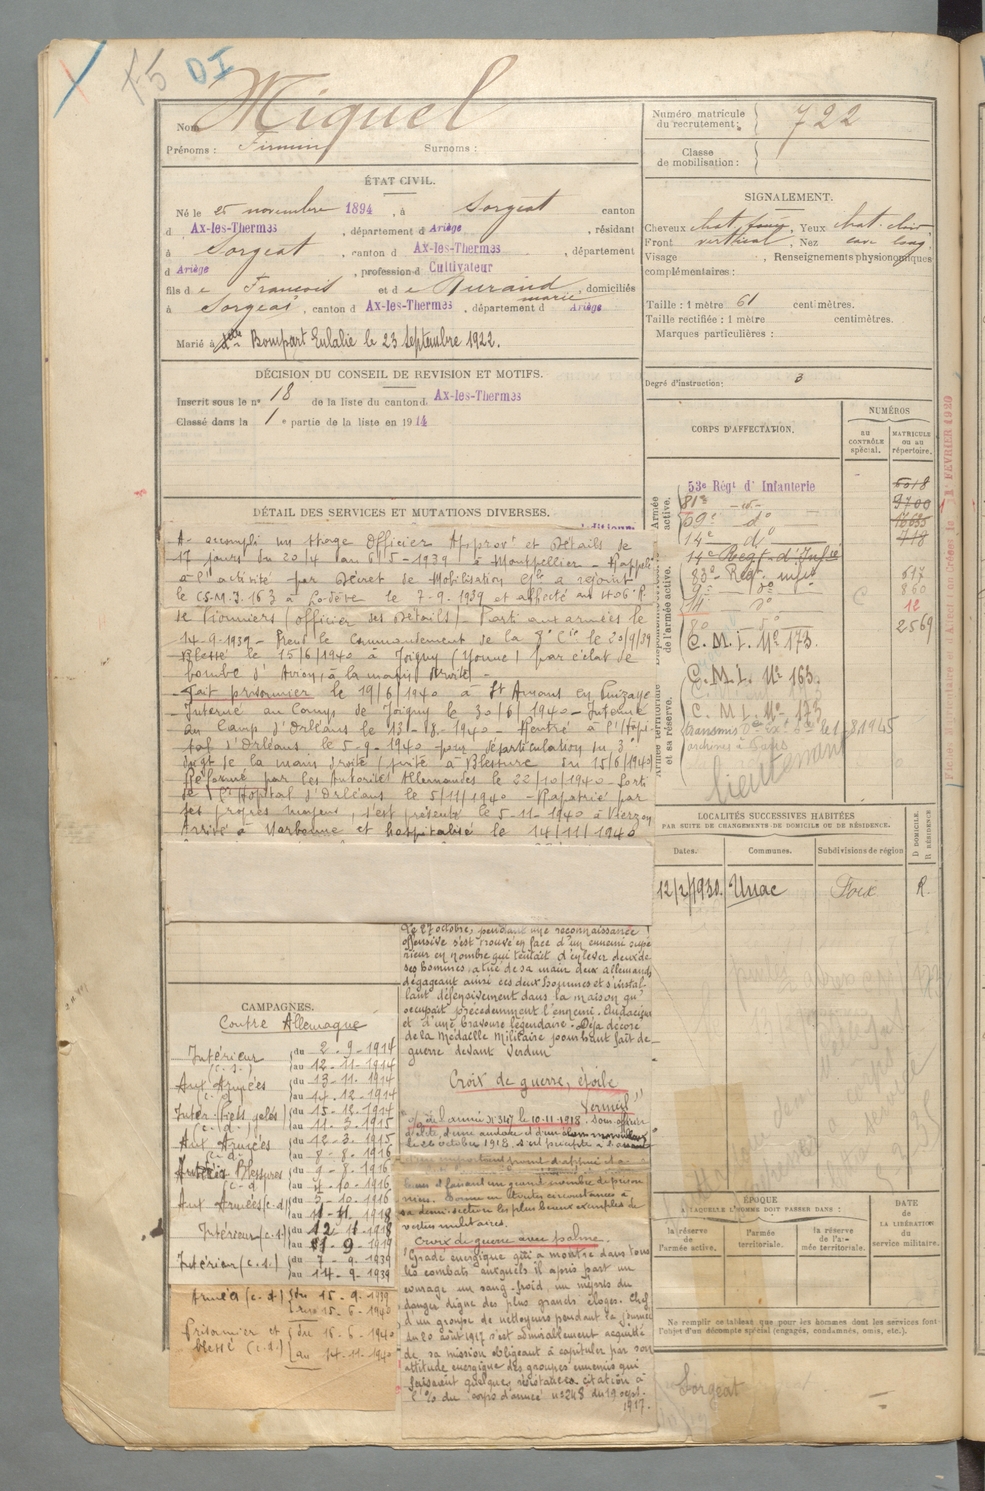 F5 DI
Nom Miquel
Prénoms : Firmin Surnoms :
Numéro matricule du recrutement : 722
Classe de mobilisation :
ÉTAT CIVIL.
Né le 25 novembre 1894, à Sorgeat canton
d Ax-les-Thermes, département d Ariège, résidant
à Sorgeat, canton d Ax-les-Thermes, département
d Ariège, profession d Cultivateur
fils d e François et d e Durand marie, domiciliés
à Sorgeat, canton d Ax-les-Thermes, département d Ariège
Marié à Bompart Eulalie le 23 Septembre 1922.
SIGNALEMENT.
Cheveux chat. foncé, Yeux chat. clair
Front vertical, Nez cave long.
Visage , Renseignements physionomiques
complémentaires :
Taille : 1 mètre 61 centimètres.
Taille rectifiée : 1 mètre centimètres.
Marques particulières :
DÉCISION DU CONSEIL DE REVISION ET MOTIFS.
Inscrit sous le n° 18 de la liste du canton d Ax-les-Thermes
Classé dans la 1e partie de la liste en 1914
Degré d'instruction : 3
CORPS D'AFFECTATION.
NUMÉROS
au CONTRÔLE spécial.
MATRICULE ou au répertoire.
Armée active.
53e Régt d'Infanterie 6018
81e 9700
59e do
14e do 718
14e Regt d'Inf
83e Reg. inf 617
do 860
14 do C 12
80 do 2569
C. M. I. No 173.
C. M. I. No 163.
C. M. I. No 173
lieutenant
de l'armée active.
Armée territoriale et sa réserve.
DÉTAIL DES SERVICES ET MUTATIONS DIVERSES.
A accompli un stage Officier Approvt et Détails de
17 jours du 20/4 au 6-5-1939 à Montpellier - Rappelé
à l'activité par Décret de Mobilisation Gle a rejoint
le C.M.I. 163 à Lodève le 7-9-1939 et affecté au 406 R.
de Pionniers (officier des Détails) - Parti aux armées le
14-9-1939 - Prend le Commandement de la 8e Cie le 20/9/39
Blessé le 15/6/1940 à Joigny (Yonne) par éclat de
bombe d'Avion, à la main droite -
Fait prisonnier le 19/6/1940 à St Amans en Puizaye
Interné au Camp de Joigny le 30/6/1940 - Interné
au Camp d'Orléans le 13-08-1940 - Rentré à l'Hôpi-
tal d'Orléans, le 5-9-1940 pour désarticulation du 3e
doigt de la main droite (suite à Blessure du 15/6/1940)
Réformé par les Autorités Allemandes le 22/10/1940 - Sorti
de l'Hôpital d'Orléans le 5/11/1940 - Rapatrié par
ses propres moyens, s'est présenté le 5-11-1940 à Vierzon
Arrivé à Narbonne et hospitalisé le 14/11/1940
LOCALITÉS SUCCESSIVES HABITÉES
PAR SUITE DE CHANGEMENTS DE DOMICILE OU DE RÉSIDENCE.
Dates. Communes. Subdivisions de région D. DOMICILE. R. RÉSIDENCE
12/2/1930. Unac Foix R.
le 27 octobre, pendant une reconnaissance
offensive s'est trouvé en face d'un ennemi supé
rieur en nombre qui tentait d'enlever deux de
ses hommes, a tué de sa main deux allemands
dégageant ainsi ces deux hommes et s'instal-
lant défensivement dans la maison qu'
occupait précédemment l'ennemi. Audacieux
et d'une bravoure légendaire. Déjà décoré
de la Médaille Militaire pour haut fait de
guerre devant Verdun
Croix de guerre, étoile
Vermeil
l'armée N° 347 le 10.11.1918. Sous-officier
d'élite, d'une audace et d'un
le 26 octobre 1918, s'est précipité
faisant un grand nombre de prison
niers. Donne en toutes circonstances à
sa demi-section les plus beaux exemples de
vertus militaires.
Croix de guerre avec palme.
Gradé énergique qui a montré dans tous
les combats auxquels il a pris part un
courage un sang-froid, un mépris du
danger digne des plus grands éloges. Chef
d'un groupe de nettoyeurs pendant la journée
du 20 août 1917 s'est admirablement acquitté
de sa mission obligeant à capituler par son
attitude énergique des groupes ennemis qui
faisaient quelques résistances. Citation à
l'% du Corps d'armée n° 248 du 19 sept.
1917.
CAMPAGNES.
Contre Allemagne
Intérieur (c.s.) du 2-9-1914 au 12-11-1914
Aux Armées (c.d.) du 13-11-1914 au 14-12-1914
Intér. Pieds gelés (c.d.) du 15-12-1914 au 11-3-1915
Aux Armées (c.d.) du 12-3-1915 au 8-8-1916
Intérieur Blessures (c.d.) du 9-8-1916 au 4-10-1916
Aux Armées (c.d.) du 5-10-1916 au 11-11-1918
Intérieur (c.s.) du 12-11-1918 au 9-1919
Intérieur (c.s.) du 7-9-1939 au 14-9-1939
Armée (c.d.) du 15-9-1939 15-6-1940
Prisonnier et blessé (c.s.) du 16-6-1940 au 14-11-1940
ÉPOQUE
A LAQUELLE L'HOMME DOIT PASSER DANS :
la réserve de l'armée active.
l'armée territoriale.
la réserve de l'armée territoriale.
DATE de LA LIBÉRATION du service militaire.
Ne remplir ce tableau que pour les hommes dont les services font
l'objet d'un décompte spécial (engagés, condamnés, omis, etc.).
Sorgeat